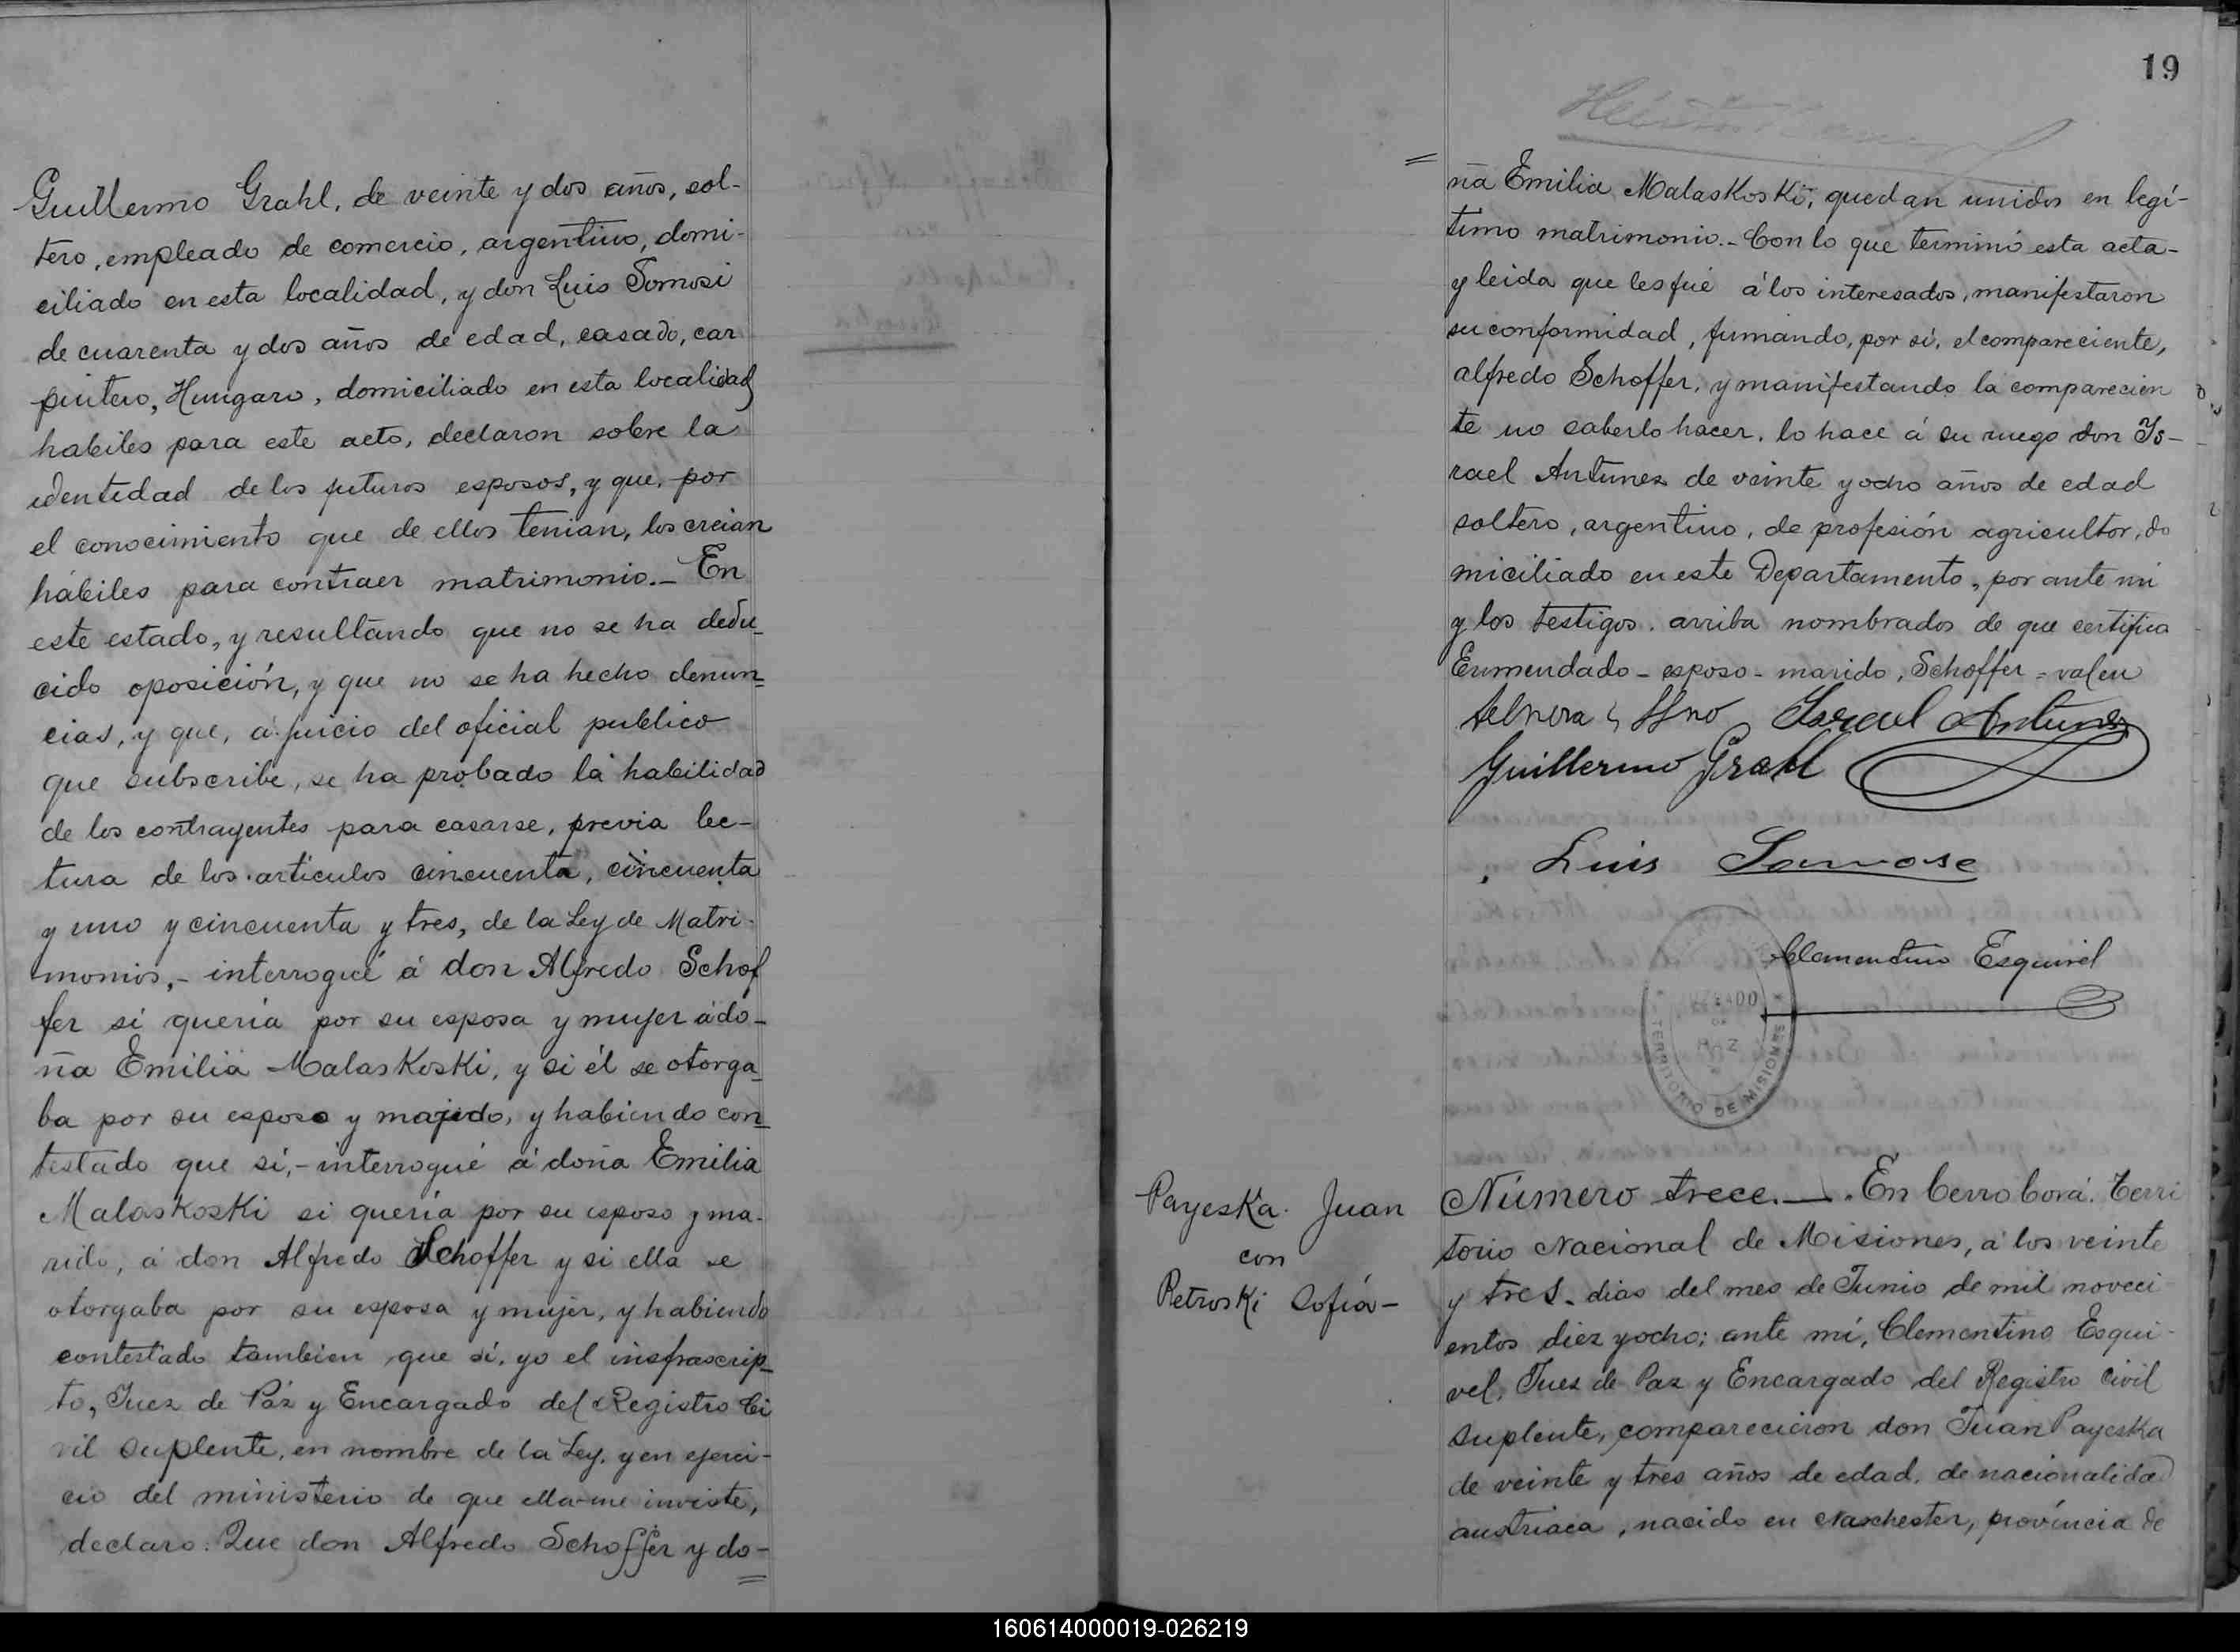 Guillermo Grahl, de veinte y dos años, sol-
tero, empleado de comercio, argentino, domi-
ciliado en esta localidad, y don Luis Somosi
de cuarenta y dos años de edad, casado, car
pintero, Hungaro, domiciliado en esta localidad
habiles para este acto, declaron sobre la
identidad de los futuros esposos, y que, por
el conocimiento que de ellos tenian, los creian
hábiles para contraer matrimonio.- En
este estado, y resultando que no se ha dedu_
cido oposición, y que no se ha hecho denun=
cias, y que, a juicio del oficial publico
que subscribe, se ha probado la habilidad
de los contrayentes para casarse, previa lec-
tura de los articulos cincuenta, cincuenta
y uno y cincuenta y tres, de la Ley de Matri-
monios,- interrogué á don Alfredo Schof
fer si queria por su esposa y mujer á do-
ña Emilia MalasKosKi, y si él se otorga_
ba por su esposo y marido, y habiendo con_
testado que sí,- interrogué á doña Emilia
MalasKosKi si quería por su esposo y ma-
rido, á don Alfredo Schoffer y si ella se
otorgaba por su esposa y mujer, y habiendo
contestado tambien que sí, yo el insfrascrip_
to, Juez de Páz y Encargado del Registro Ci
vil suplente, en nombre de la Ley, y en ejerci-
cio del ministerio de que ella me inviste,
declaro: Que don Alfredo Schoffer y do-
=
19
=
ña Emilia MalasKosKi, quedan unidos en legí-
timo matrimonio.- Con lo que terminó esta acta-
y leida que les fué á los interesados, manifestaron
su conformidad, firmando, por sí, el compareciente,
alfredo Schoffer, y manifestando la comparecien
te no saberlo hacer, lo hace á su ruego don Is-
rael Antunez de veinte y ocho años de edad
soltero, argentino, de profesión agricultor, do
miciliado en este Departamento, por ante mi
y los testigos arriba nombrados de que certifica
Enmendado - esposo - marido, Schoffer = valen
Israel Antunez
Guillermo Grahl
Luis Somose
Clementino Esquivel
JUZGADO
DE
PAZ
TERRITORIO DE MISIONES
PayesKa Juan
con
PetrosKi Sofía-
Número trece.—. En Cerro Corá. Terri
torio Nacional de Misiones, á los veinte
y tres dias del mes de Junio de mil noveci
entos diez y ocho; ante mí, Clementino Esqui-
vel, Juez de Paz y Encargado del Registro Civil
suplente, comparecieron don Juan PayesKa
de veinte y tres años de edad, de nacionalidad
austriaca, nacido en Naschester, província de
160614000019-026219